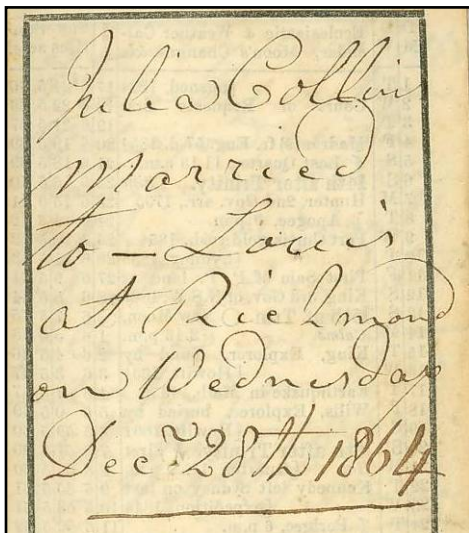 Julia Collin
Married
to — Louis
at Richmond
on Wednesday
Decr. 28th 1864